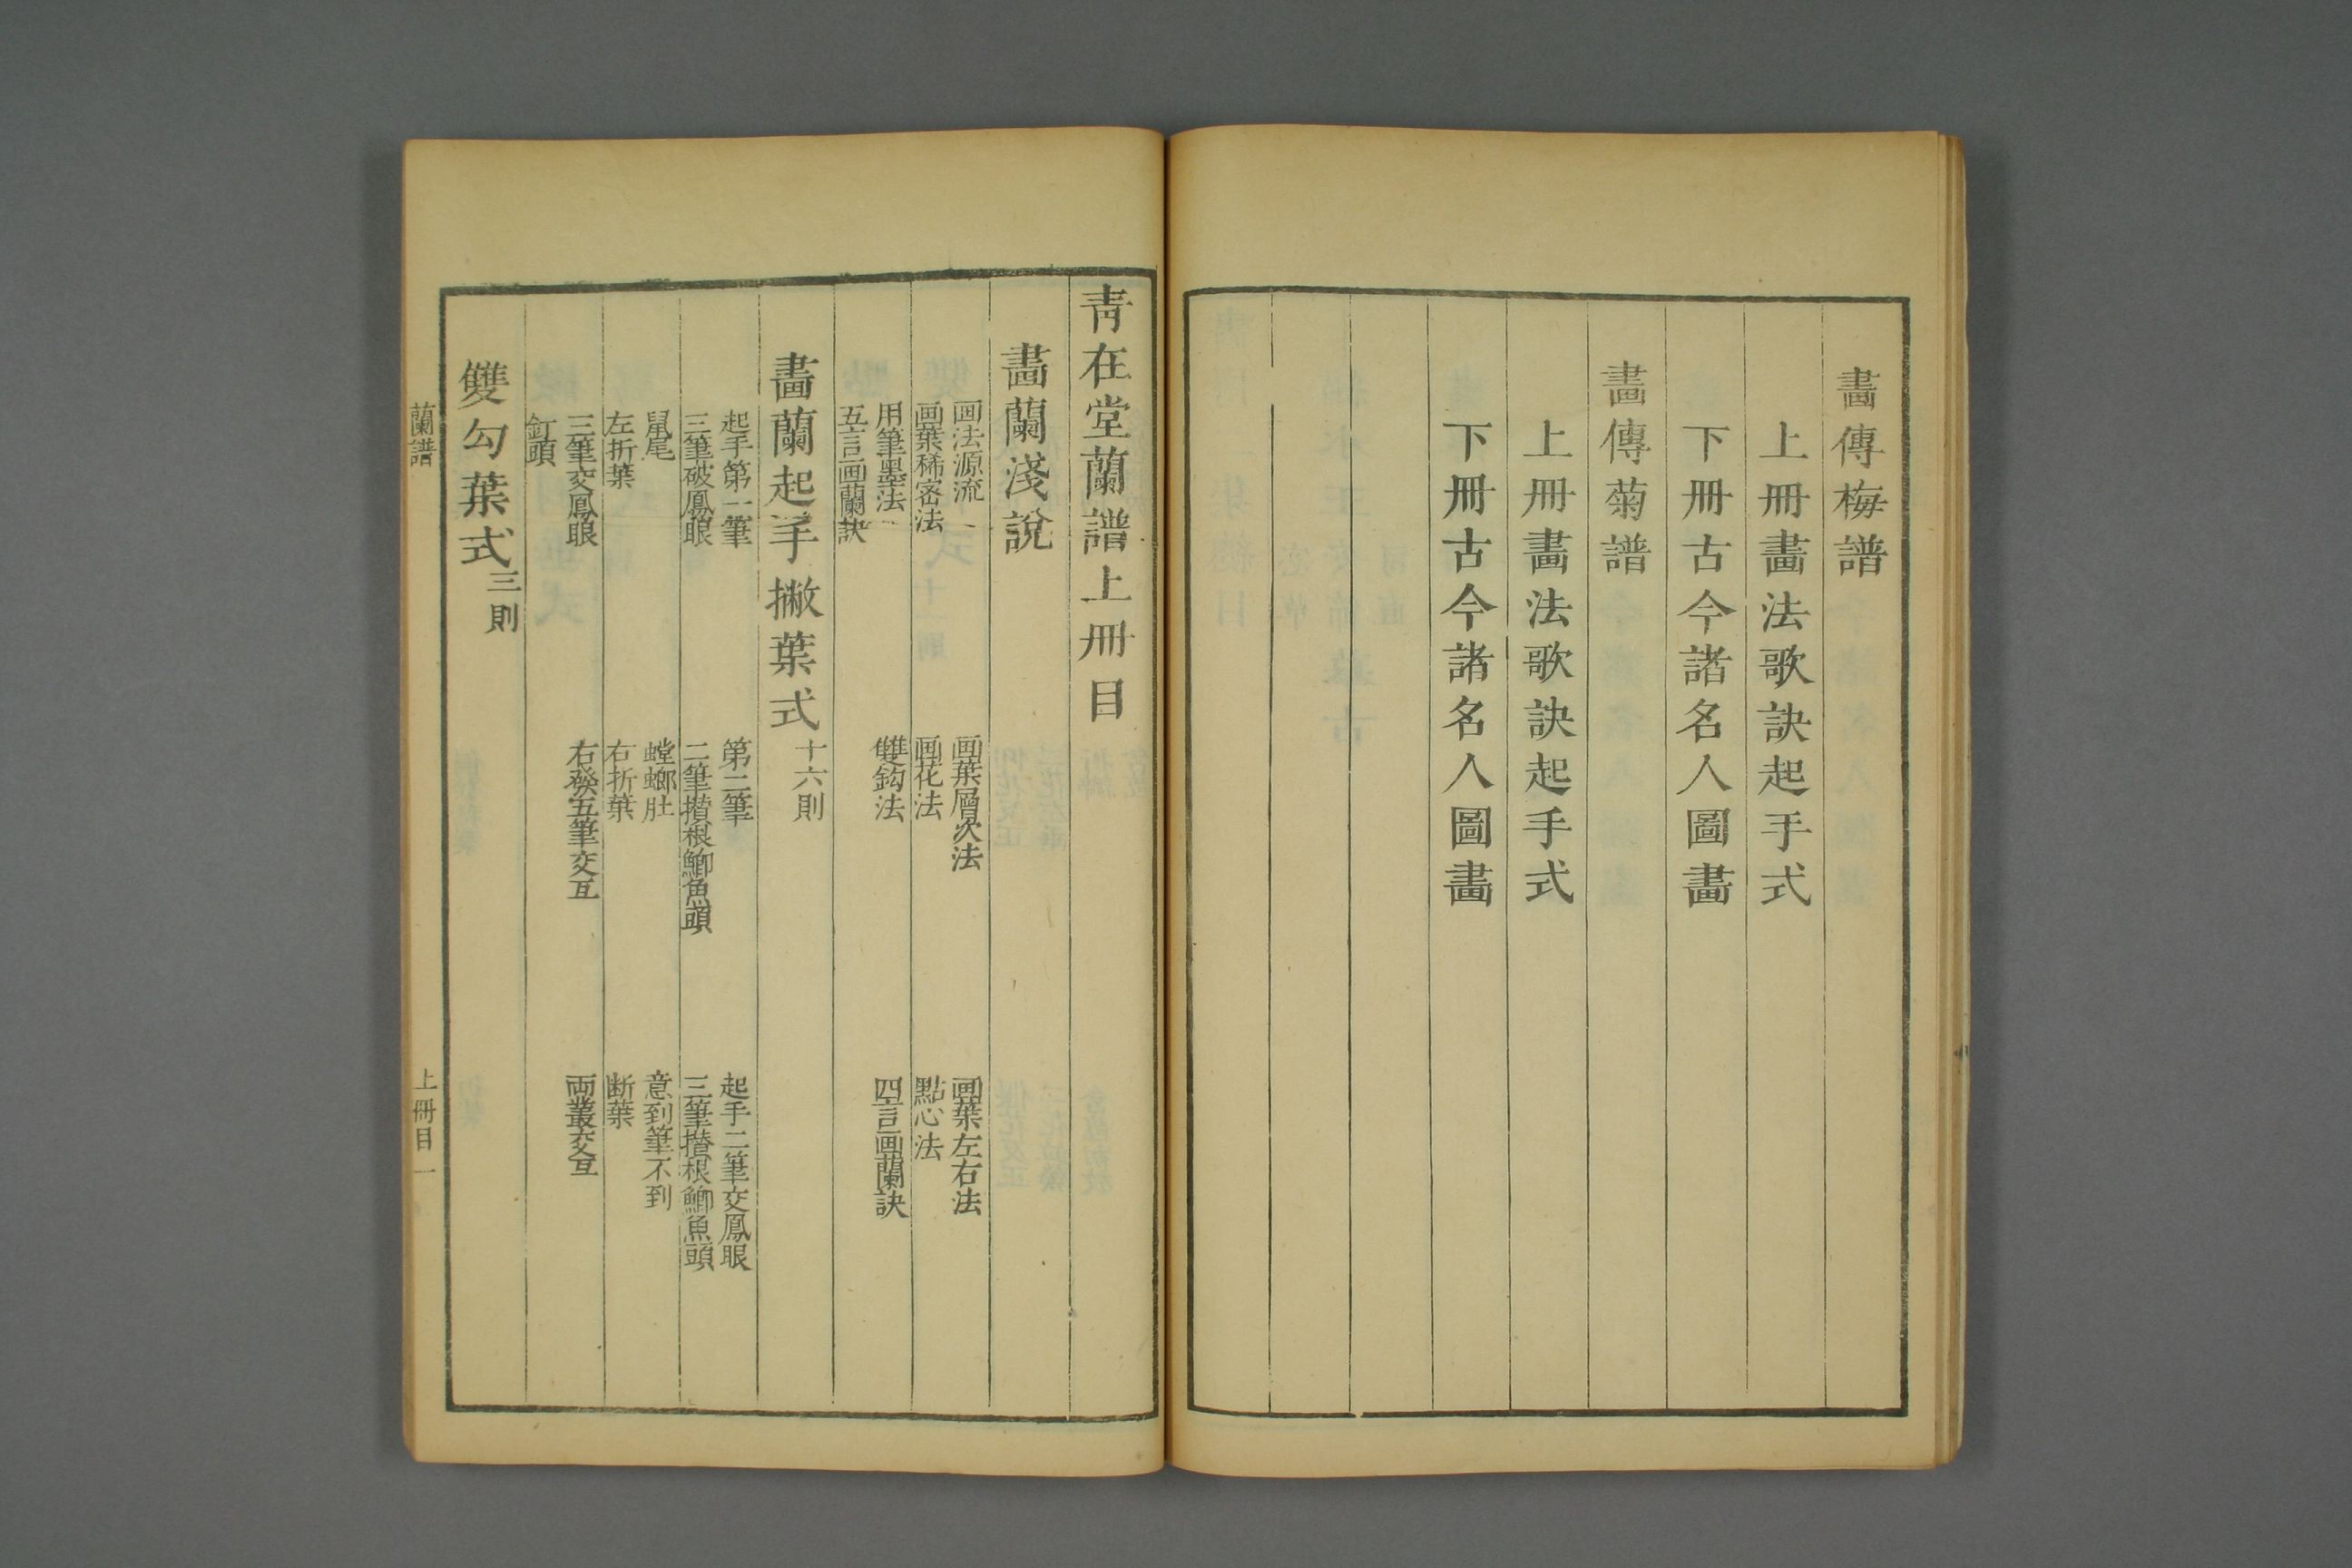 畫傳梅譜
上冊畫法歌訣起手式
下冊古今諸名人圖畫
畫傳菊譜
上冊畫法歌訣起手式
下冊古今諸名人圖畫
青在堂蘭譜上冊目
畫蘭淺說
画法源流 画葉層次法 画葉左右法
画葉稀密法 画花法 點心法
用筆墨法 雙鈎法 四言画蘭訣
五言画蘭訣
畫蘭起手撇葉式 十六則
起手第一筆 第二筆 起手二筆交鳳眼
三筆破鳳眼 二筆攅根鯽魚頭 三筆攅根鯽魚頭
鼠尾 螳螂肚 意到筆不到
左折葉 右折葉 断葉
三筆交鳳眼 右發五筆交互 両叢交互
釘頭
雙勾葉式 三則
蘭譜 上冊目 一